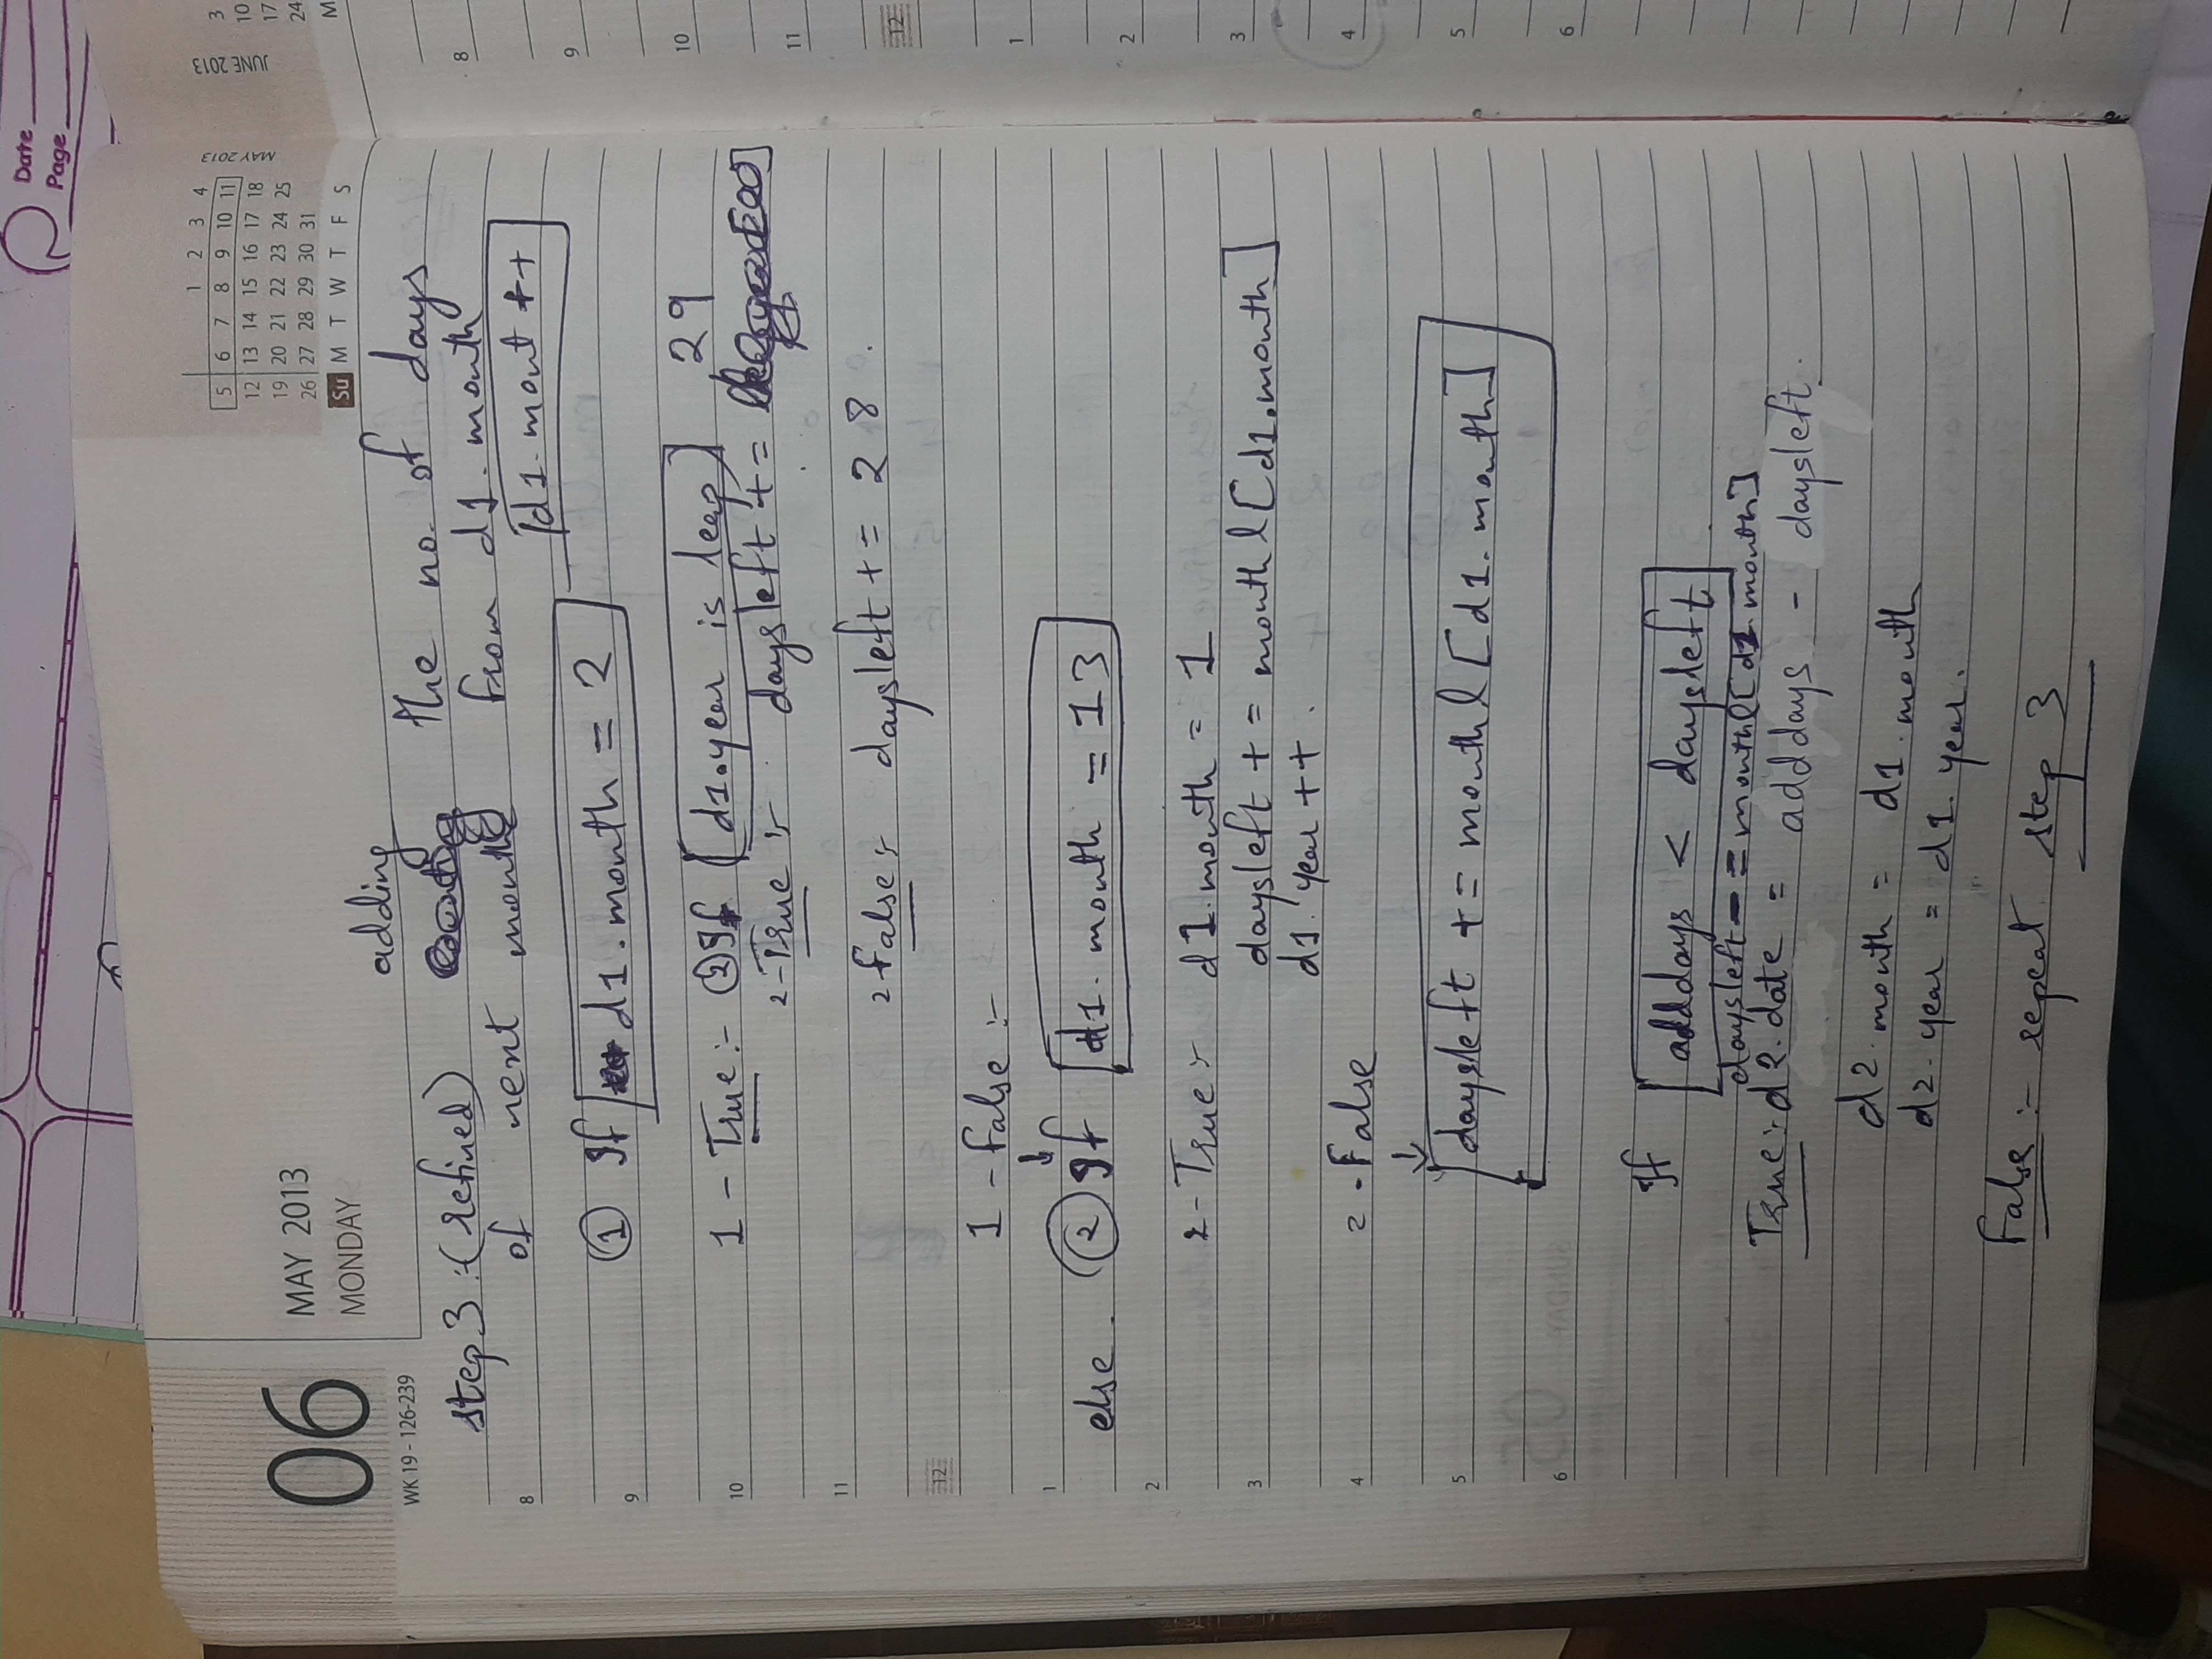 Date
Page
06
MAY 2013
MONDAY
WK 19 - 126-239
1 2 3 4
5 6 7 8 9 10 11
12 13 14 15 16 17 18
19 20 21 22 23 24 25
26 27 28 29 30 31
Su M T W T F S
MAY 2013
JUNE 2013
3
10
17
24
M
adding
step 3 :- (refined) the no. of days
of next month from d1. month
d1. mont ++
8
① If d1. month = 2
9
1 - True :- ② If [d1.year is leap] 29
10
2-True :- daysleft +=
11
2 false :- daysleft += 28 .
12
1 - false :-
↓
1
else ② If d1. month = 13
2
2- True :- d1.month = 1
daysleft += monthl[d1.month]
3
d1. year ++ .
2 - False
4
↓
daysleft += monthl[d1. month]
5
6
If adddays < daysleft
daysleft -= monthl[d1.month]
True :- d2.date = adddays - daysleft.
d2. month = d1. month
d2. year = d1. year.
False :- repeat step 3
8
9
10
11
12
1
2
3
4
5
6